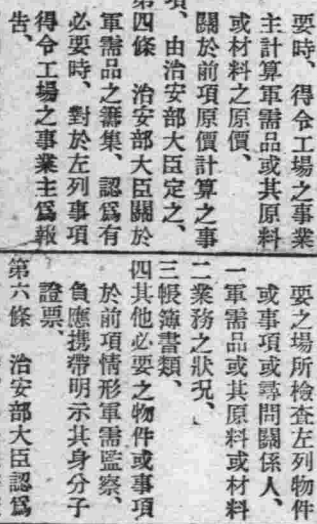 要時、得令工場之事業
主計算軍需品或其原料
或材料之原價、
關於前項原價計算之事
項、由治安部大臣定之、
第四條　治安部大臣關於
軍需品之籌集、認爲有
必要時、對於左列事項
得令工場之事業主爲報
告、
要之場所檢查左列物件
或事項或尋問關係人、
一軍需品或其原料或材料
二業務之狀況、
三帳簿書類、
四其他必要之物件或事項
於前項情形軍需監察、
負應携帶明示其身分子
證票、
第六條　治安部大臣認爲